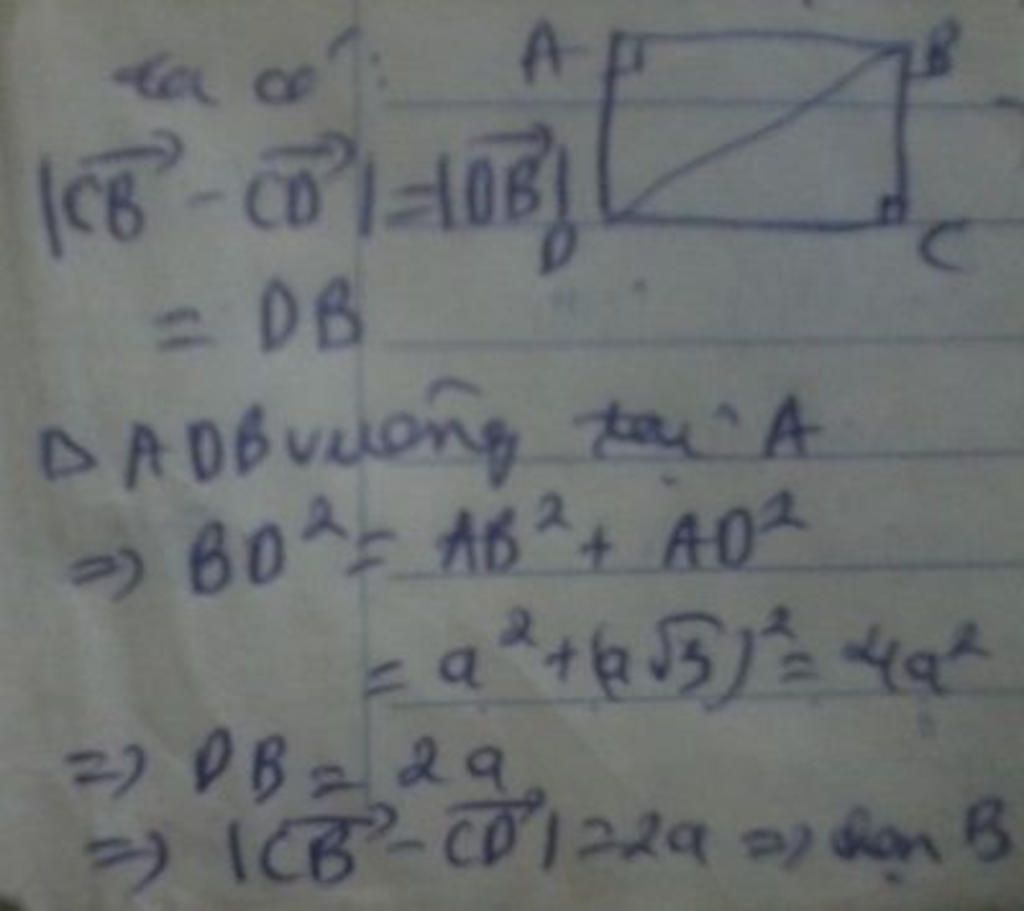 ta có:
A B
|\overrightarrow{CB} - \overrightarrow{CD}| = |\overrightarrow{DB}|
D C
= DB
Δ ADB vuông tại A
=> BD² = AB² + AD²
= a² + (a√3)² = 4a²
=> DB = 2a
=> |\overrightarrow{CB} - \overrightarrow{CD}| = 2a => chọn B